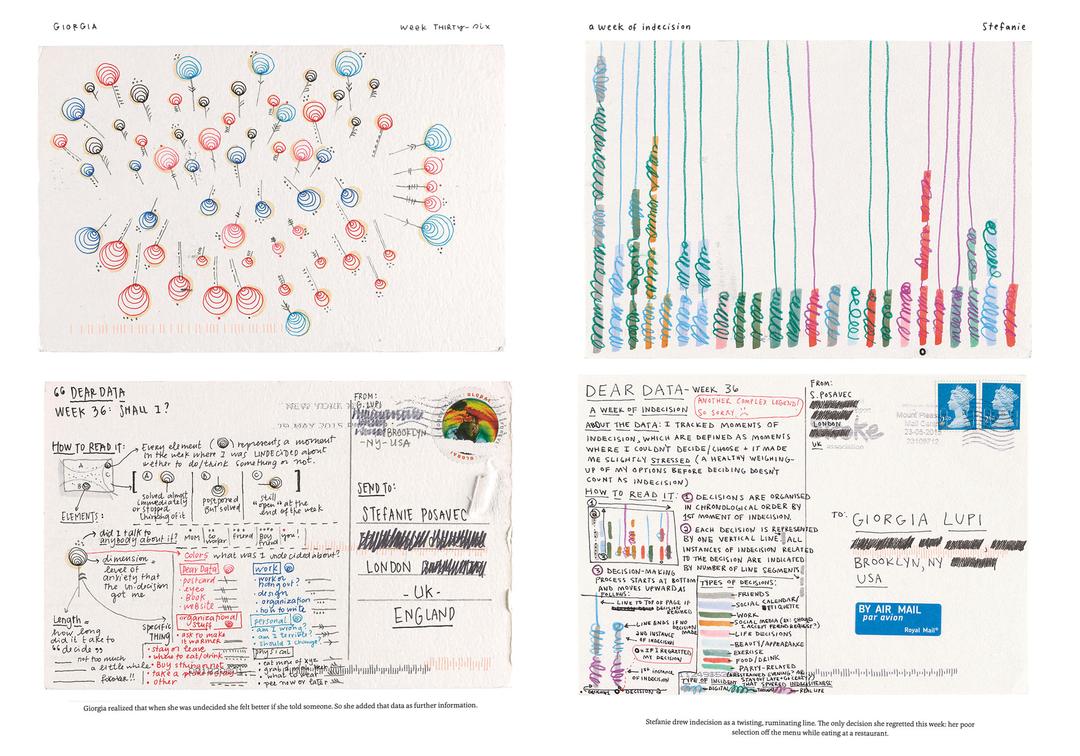 GIORGIA
week THIRTY-six
a week of indecision
Stefanie
" DEAR DATA
WEEK 36: SHALL I?
FROM:
G. LUPI
BROOKLYN
-NY- USA
GLOBAL
HOW TO READ IT:
Every element ( ) represents a moment
in the week where I was UNDECIDED about
wether to do/think something or not.
A
B
C
solved almost
immediately
or stopped
thinking of it
postponed
But solved
still
"open" at the
end of the week
ELEMENTS:
did I talk to
anybody about it?
MOM
Friend
Boy
Friend
you!
dimension =
level of
anxiety that
the in-decision
got me
Colors what was I undecided about?
Dear Data
• postcard
• Book
• website
organizational
stuff
• ask to make
it warmer
• stay or leave
• where to eat/drink
• other
work
• design
• organization
• how to write
personal
• am I wrong?
• am I terrible?
• should I change?
physical
• what to wear
• pee now or later
Length =
how long
did it take to
"decide"
SPECIFIC
THING
not too much
a little while
forever!!
SEND TO:
STEFANIE POSAVEC
LONDON
- UK -
ENGLAND
Giorgia realized that when she was undecided she felt better if she told someone. So she added that data as further information.
DEAR DATA - WEEK 36
ANOTHER COMPLEX LEGEND!
SO SORRY
A WEEK OF INDECISION
ABOUT THE DATA: I TRACKED MOMENTS OF
INDECISION, WHICH ARE DEFINED AS MOMENTS
WHERE I COULDN'T DECIDE/CHOOSE + IT MADE
ME SLIGHTLY STRESSED (A HEALTHY WEIGHING-
UP OF MY OPTIONS BEFORE DECIDING DOESN'T
COUNT AS INDECISION)
HOW TO READ IT:
① DECISIONS ARE ORGANISED
IN CHRONOLOGICAL ORDER BY
1ST MOMENT OF INDECISION.
② EACH DECISION IS REPRESENTED
BY ONE VERTICAL LINE. ALL
INSTANCES OF INDECISION RELATED
TO THE DECISION ARE INDICATED
BY NUMBER OF LINE SEGMENTS
③ DECISION-MAKING
PROCESS STARTS AT BOTTOM
AND MOVES UPWARD AS
FOLLOWS:
LINE TO TOP OF PAGE IF
LINE ENDS IF NO
DECISION
MADE
2ND INSTANCE
OF INDECISION
O = IF I REGRETTED
MY DECISION
1ST INSTANCE
OF INDECISION
TYPES OF DECISIONS:
FRIENDS
SOCIAL CALENDAR/
ETIQUETTE
WORK
LIFE DECISIONS
BEAUTY/APPEARANCE
EXERCISE
FOOD/DRINK
PARTY-RELATED
DIGITAL
REAL LIFE
FROM:
S. POSAVEC
LONDON
UK
Mount Pleasant
Mail Centre
23-06-2015
TO:
GIORGIA LUPI
BROOKLYN, NY
USA
BY AIR MAIL
par avion
Royal Mail
Stefanie drew indecision as a twisting, ruminating line. The only decision she regretted this week: her poor
selection off the menu while eating at a restaurant.